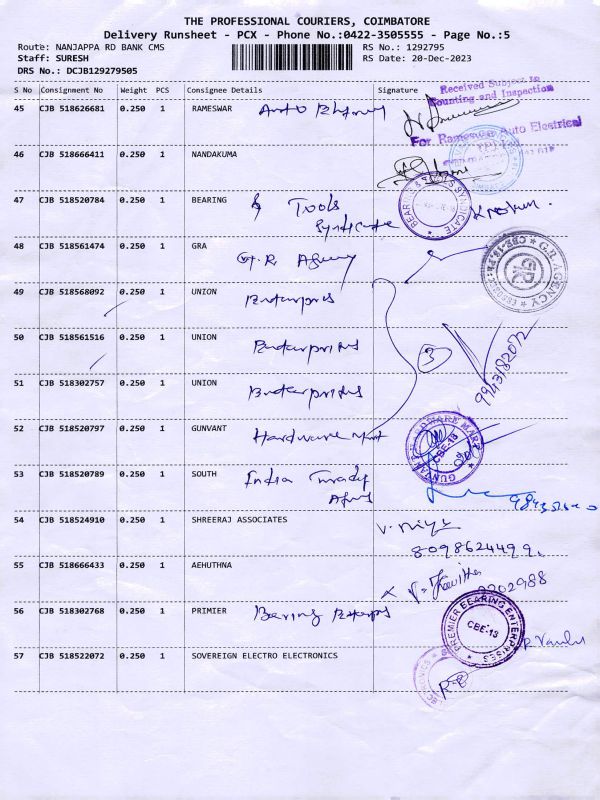 THE PROFESSIONAL COURIERS, COIMBATORE
Delivery Runsheet - PCX - Phone No.:0422-3505555 - Page No.:5
Route: NANJAPPA RD BANK CMS RS No.: 1292795
Staff: SURESH RS Date: 20-Dec-2023
DRS No.: DCJB129279505
S No Consignment No Weight PCS Consignee Details Signature
Received Subject to
Counting and Inspection
45 CJB 518626681 0.250 1 RAMESWAR Auto
For Rameswar Auto Electrical
46 CJB 518666411 0.250 1 NANDAKUMA
47 CJB 518520784 0.250 1 BEARING & Tools
Syndicate
BEARING & TOOLS SYNDICATE
48 CJB 518561474 0.250 1 GRA G.R. Agency
G.R. AGENCY GR
49 CJB 518568092 0.250 1 UNION Enterprises
50 CJB 518561516 0.250 1 UNION Enterprises
3
9943182072
51 CJB 518302757 0.250 1 UNION Enterprises
52 CJB 518520797 0.250 1 GUNVANT Hardware Mart
GUNVANT HARDWARE MART CBE-18
53 CJB 518520789 0.250 1 SOUTH India
54 CJB 518524910 0.250 1 SHREERAJ ASSOCIATES
8098624499
55 CJB 518666433 0.250 1 AEHUTHNA
56 CJB 518302768 0.250 1 PRIMIER Bearing Enterprises
PREMIER BEARING ENTERPRISES CBE-18
57 CJB 518522072 0.250 1 SOVEREIGN ELECTRO ELECTRONICS